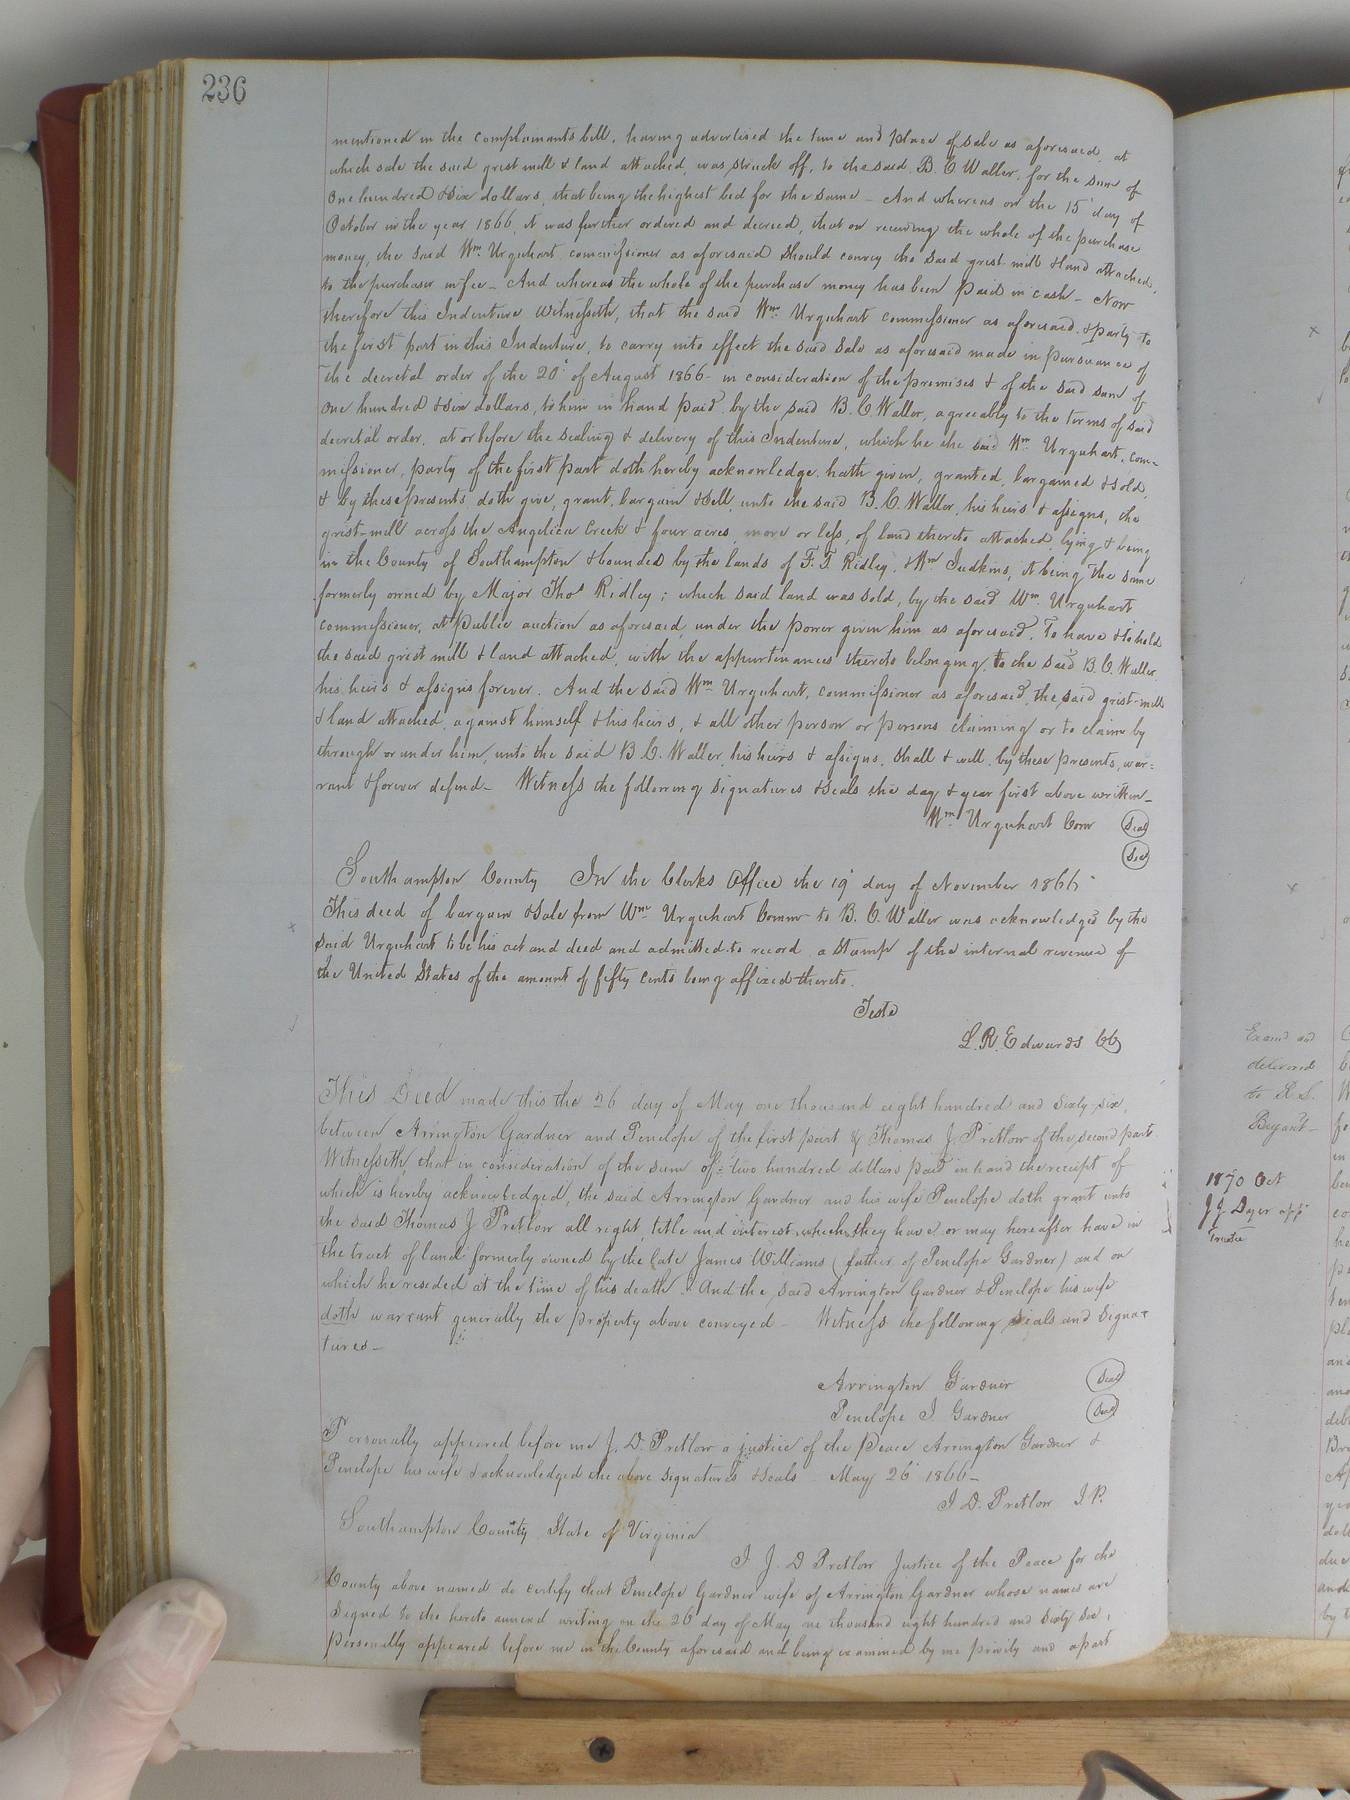 236
mentioned in the complainants bill, having advertised the time and place of sale as aforesaid, at
which sale the said grist mill & land attached, was struck off, to the said B. C. Waller, for the sum of
One hundred & six dollars, that being the highest bid for the same – And whereas on the 15' day of
October in the year 1866, it was further ordered and decreed, that on receiving the whole of the purchase
money, the said Wm. Urquhart commissioner as aforesaid should convey the said grist mill & land attached,
to the purchaser in fee – And whereas the whole of the purchase money has been paid in cash – Now
therefore this Indenture Witnesseth, that the said Wm. Urquhart commissioner as aforesaid & party to
the first part in this Indenture, to carry into effect the said sale as aforesaid made in pursuance of
the decretal order of the 20' of August 1866 – in consideration of the premises & of the said sum of
One hundred & six dollars, to him in hand paid by the said B. C. Waller, agreeably to the terms of said
decretal order, at or before the sealing & delivery of this Indenture, which he the said Wm. Urquhart, com-
missioner, party of the first part doth hereby acknowledge, hath given, granted, bargained & sold,
& by these presents doth give, grant, bargain & sell, unto the said B. C. Waller, his heirs & assigns, the
grist-mill across the Angelica Creek & four acres, more or less, of land thereto attached, lying & being
in the County of Southampton & bounded by the lands of F. T. Ridley, & Wm. Judkins, it being the same
formerly owned by Major Thos. Ridley; which said land was sold, by the said Wm. Urquhart
commissioner, at public auction as aforesaid, under the power given him as aforesaid. To have & to hold
the said grist mill & land attached, with the appurtinances thereto belonging, to the said B. C. Waller,
his heirs & assigns forever. And the said Wm. Urquhart, commissioner as aforesaid, the said grist-mill
& land attached, against himself & his heirs, & all other person or persons claiming or to claim by
through or under him, unto the said B. C. Waller, his heirs & assigns, shall & will, by these presents, war-
rant & forever defend – Witness the following signatures & seals the day & year first above written –
Wm. Urquhart Com Seal
Seal
Southampton County In the Clerks Office the 19' day of November 1866
This deed of bargain & sale from Wm. Urquhart Commr to B. C. Waller was acknowledged by the
said Urquhart to be his act and deed and admitted to record a stamp of the internal revenue of
the United States of the amount of fifty cents being affixed thereto.
Teste
L. R. Edwards CC
This Deed made this the 26 day of May one thousand eight hundred and sixty six,
between Arrington Gardner and Penelope of the first part & Thomas J. Pretlow of the second part
Witnesseth, that in consideration of the sum of two hundred dollars paid in hand the receipt of
which is hereby acknowledged, the said Arrington Gardner and his wife Penelope doth grant unto
the said Thomas J. Pretlow all right, title and interest which they have or may hereafter have in
the tract of land formerly owned by the late James Williams (father of Penelope Gardner) and on
which he resided at the time of his death. And the said Arrington Gardner & Penelope his wife
doth warrant generally the property above conveyed – Witness the following seals and signa-
tures –
Arrington Gardner Seal
Penelope I. Gardner Seal
Personally appeared before me J. D. Pretlow a justice of the Peace Arrington Gardner &
Penelope his wife & acknowledged the above signatures & seals – May 26' 1866 –
J D. Pretlow J. P.
Southampton County State of Virginia
I J. D Pretlow Justice of the Peace for the
County above named do certify that Penelope Gardner wife of Arrington Gardner whose names are
signed to the hereto annexed writing on the 26' day of May one thousand eight hundred and sixty six,
personally appeared before me in the County aforesaid and being examined by me privily and apart
Examd and
delivered
to R. S.
Bryant –
1870 Oct
J. J. Dozer app
Trustee